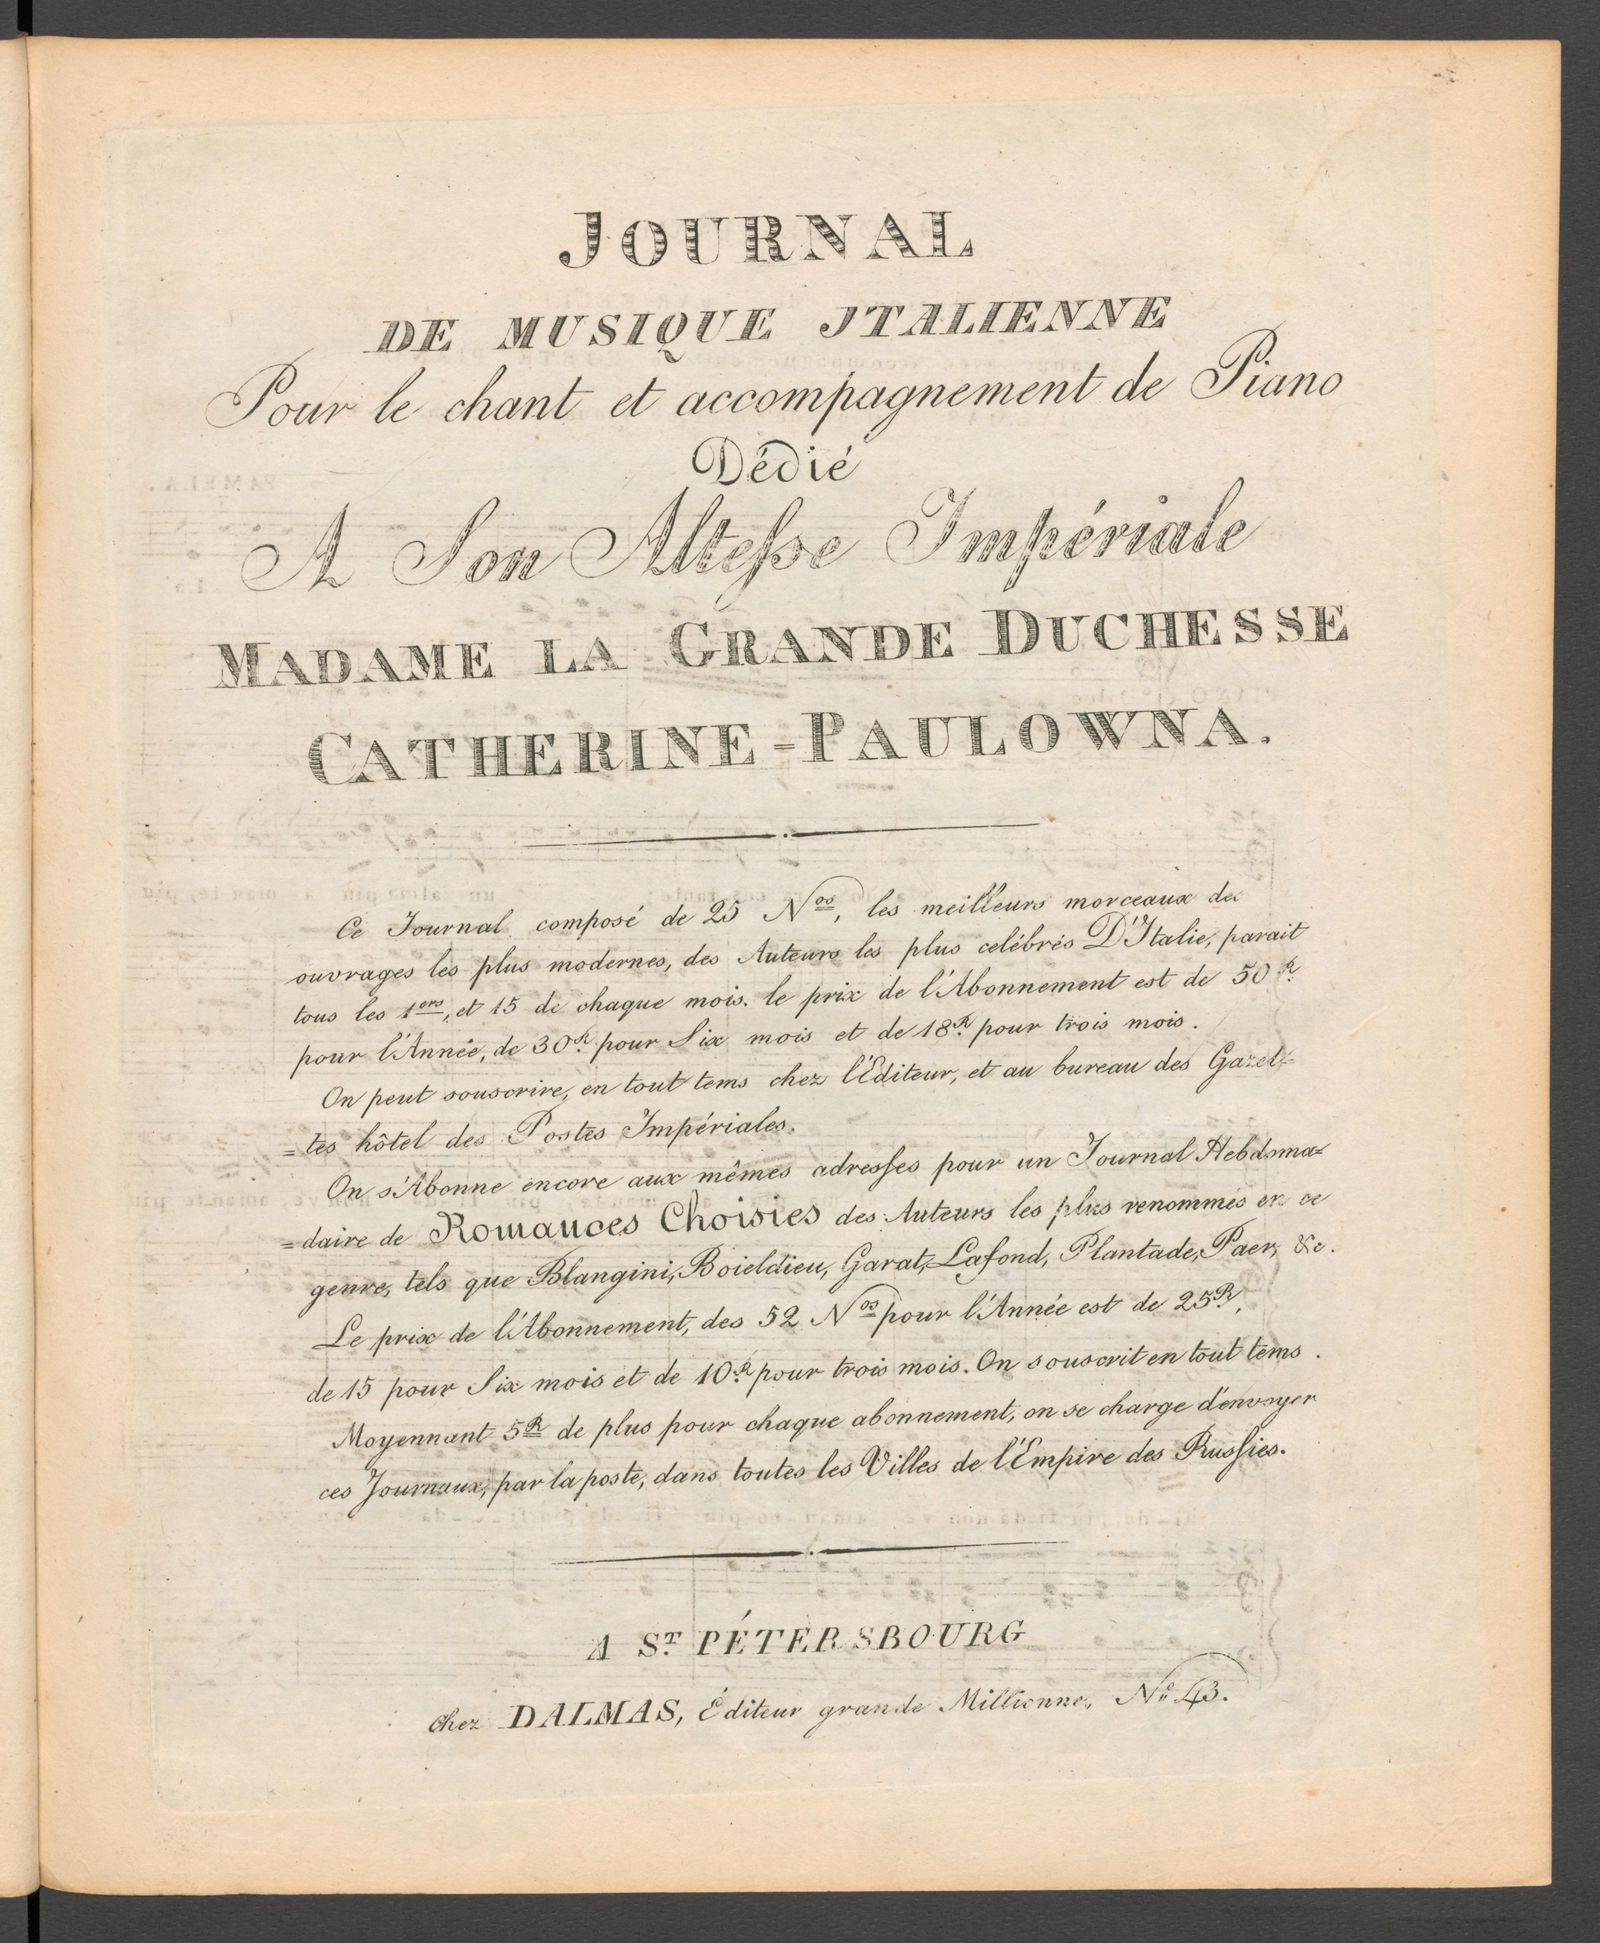 JOURNAL
DE MUSIQUE JTALIENNE
Pour le chant et accompagnement de Piano
Dédié
A Son Altesse Impériale
MADAME LA GRANDE DUCHESSE
CATHERINE=PAULOWNA.
Ce Journal composé de 25 Nos, les meilleurs morceaux des
ouvrages les plus modernes, des Auteurs les plus celébrés D'Italie, parait
tous les 1ers, et 15 de chaque mois. le prix de l'Abonnement est de 50 R.
pour l'Année, de 30R. pour Six mois et de 18R. pour trois mois.
On peut souscrire, en tout tems chez l'Editeur, et au bureau des Gazet=
=tes hôtel des Postes Impériales.
On s'Abonne encore aux mêmes adresses pour un Journal Hebdoma=
=daire de Romances Choisies des Auteurs les plus renommés en ce
genre, tels que Blangini, Boieldieu, Garat, Lafond, Plantade, Paer, &c.
Le prix de l'Abonnement, des 52 Nos pour l'Année est de 25R.,
de 15 pour Six mois et de 10R. pour trois mois. On souscrit en tout tems.
Moyennant 5R de plus pour chaque abonnement, on se charge d'envoyer
ces Journaux, par la poste, dans toutes les Villes de l'Empire des Russies.
A ST. PÉTERSBOURG
chez DALMAS, Éditeur grande Millionne, No. 43.